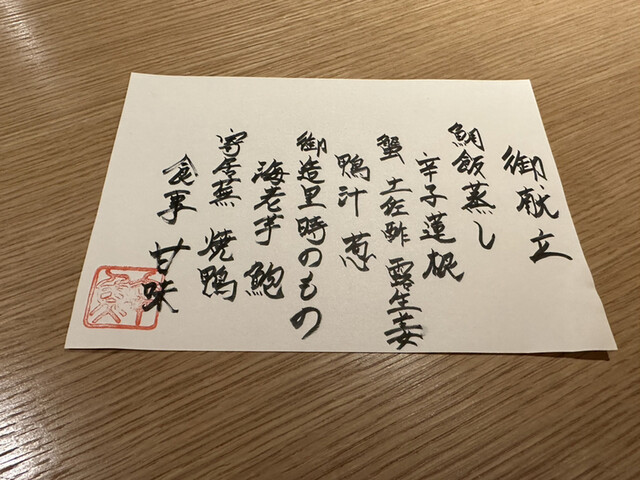 御献立
鯛飯蒸し
辛子蓮根
蟹 土佐酢 露生姜
鴨汁 葱
御造里時のもの
海老芋 鮑
焼鴨
食事 甘味